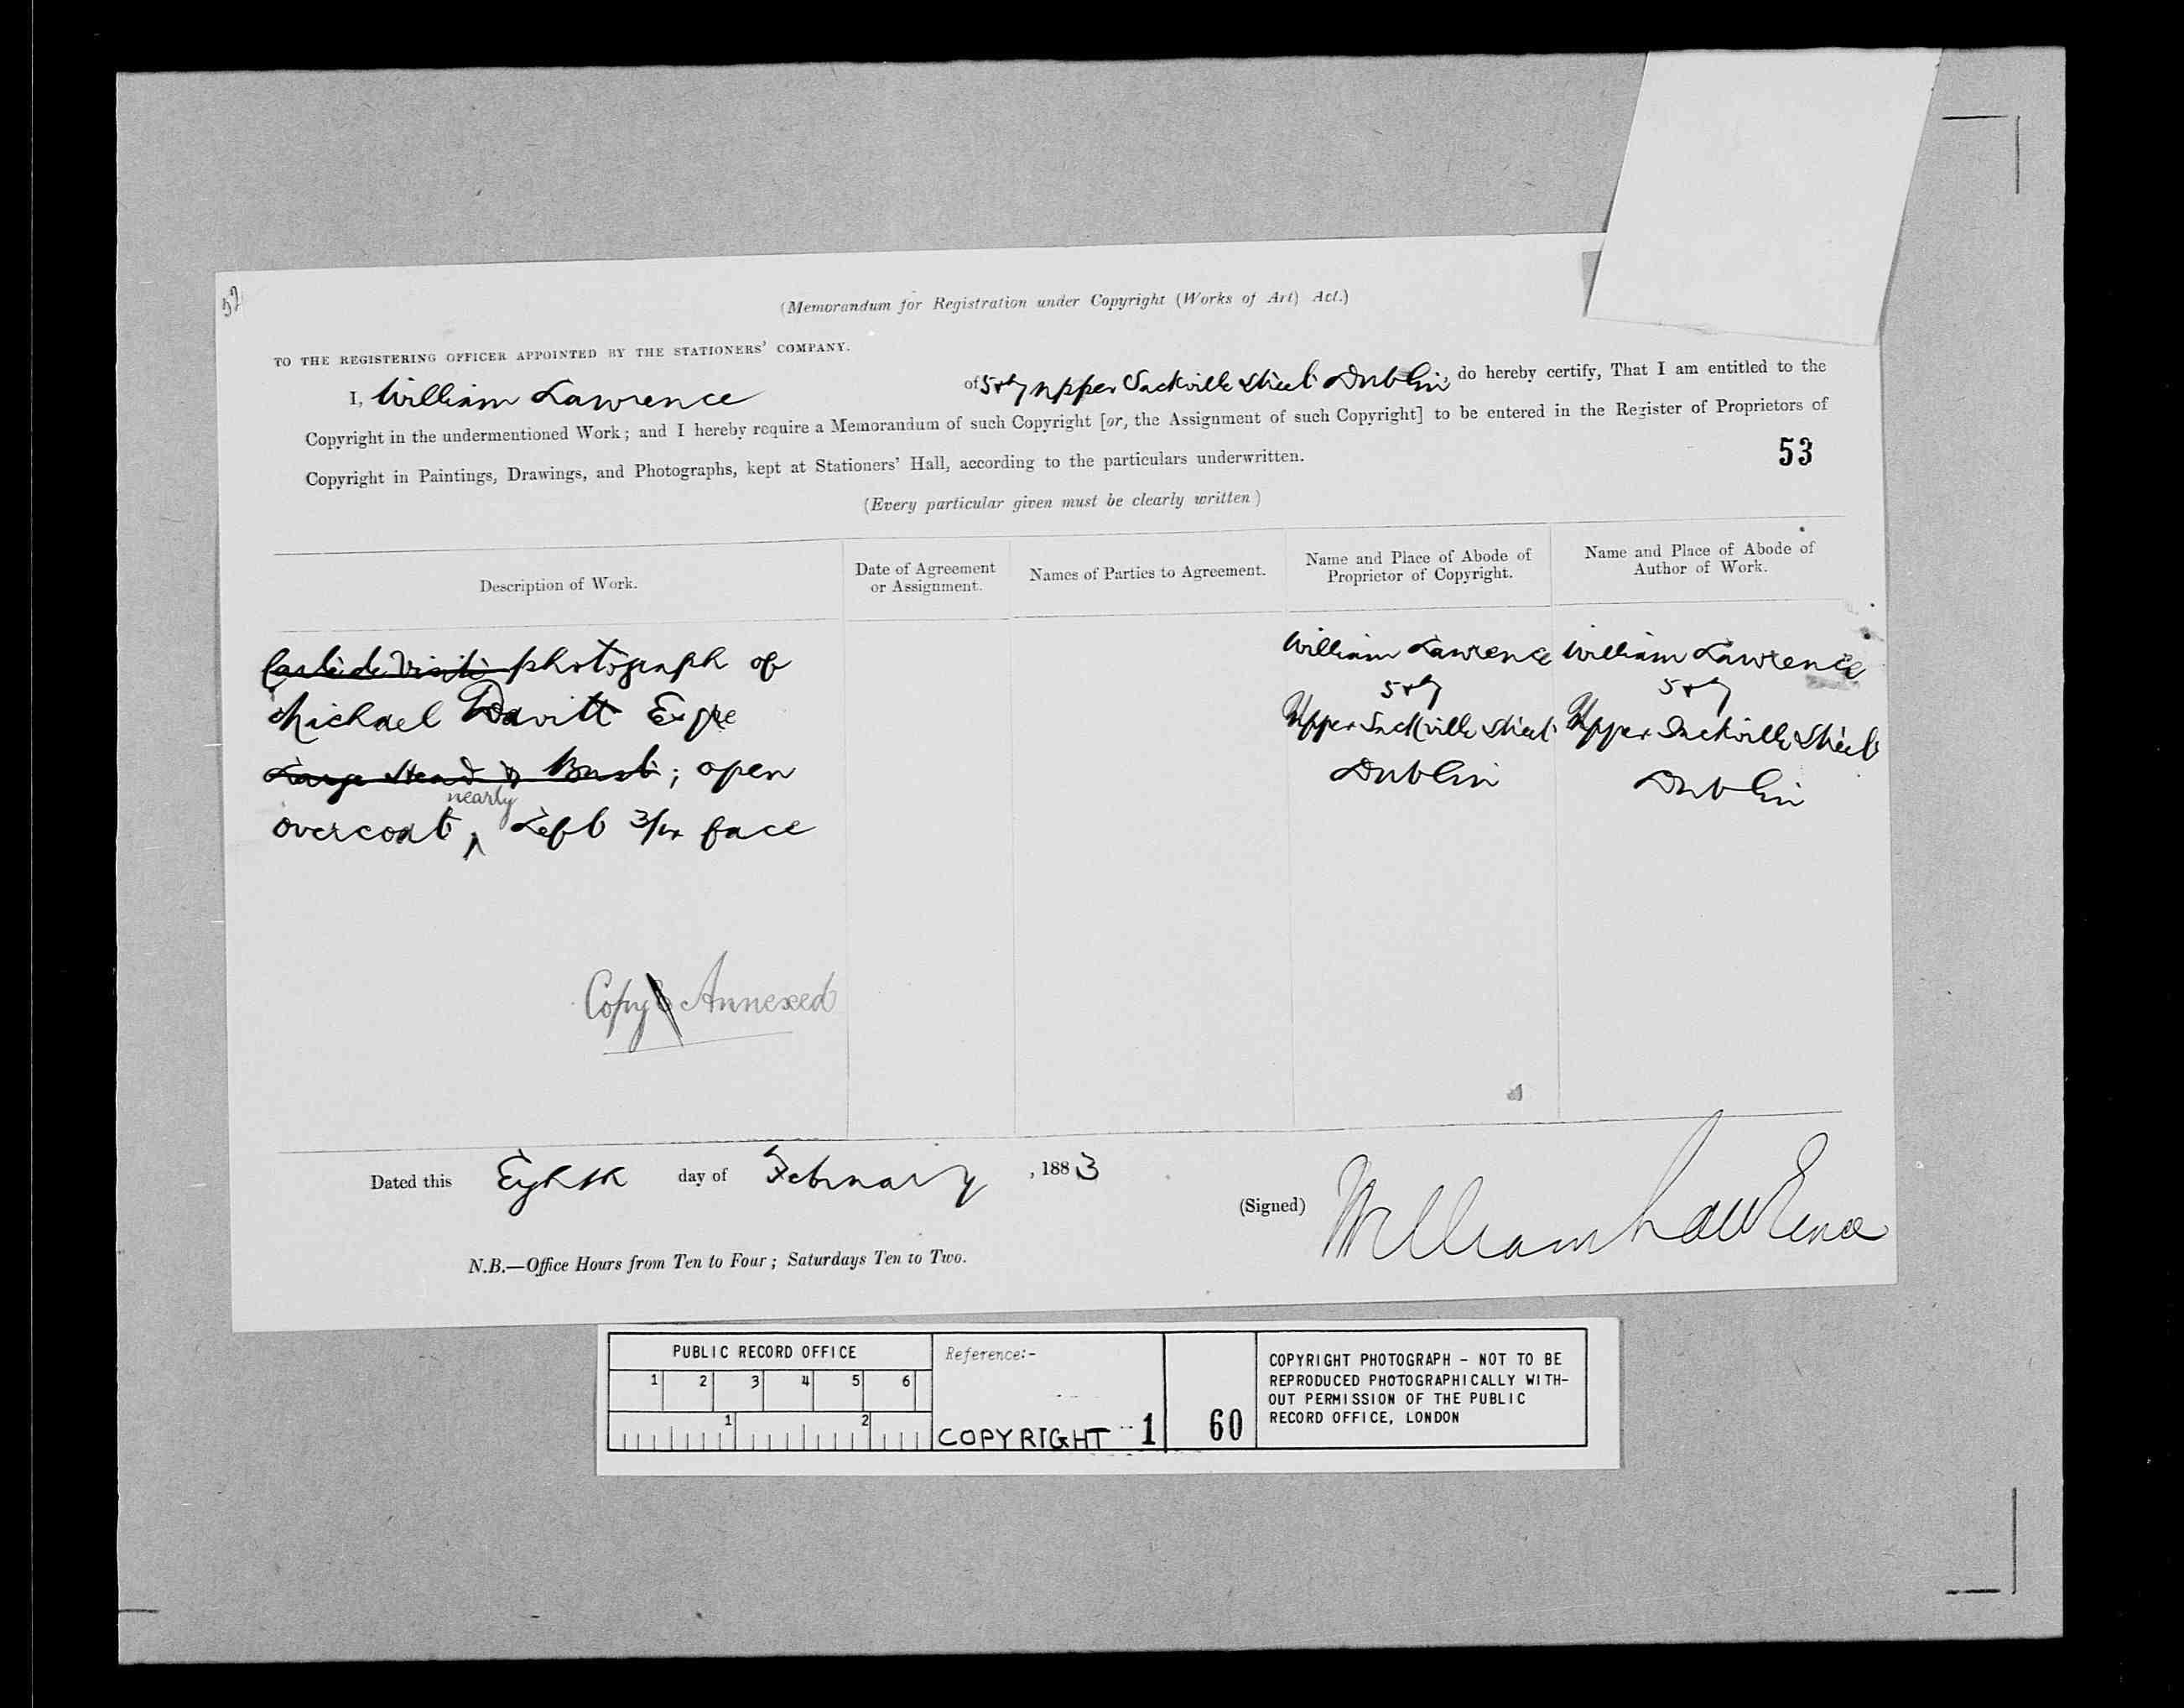 57
(Memorandum for Registration under Copyright (Works of Art) Act.)
TO THE REGISTERING OFFICER APPOINTED BY THE STATIONERS' COMPANY.
I, William Lawrence of 5 & 7 Upper Sackville Street Dublin, do hereby certify, That I am entitled to the
Copyright in the undermentioned Work; and I hereby require a Memorandum of such Copyright [or, the Assignment of such Copyright] to be entered in the Register of Proprietors of
Copyright in Paintings, Drawings, and Photographs, kept at Stationers' Hall, according to the particulars underwritten.
53
(Every particular given must be clearly written)
Description of Work.
Date of Agreement
or Assignment.
Names of Parties to Agreement.
Name and Place of Abode of
Proprietor of Copyright.
Name and Place of Abode of
Author of Work.
Carte de Visite photograph of
Michael Davitt Esqre
Large Head & Bust; open
nearly
overcoat, Left 3/4 face
Copy Annexed
William Lawrence
5 & 7
Upper Sackville Street
Dublin
William Lawrence
5 & 7
Upper Sackville Street
Dublin
Dated this Eighth day of February, 1883
(Signed) William Lawrence
N.B.—Office Hours from Ten to Four; Saturdays Ten to Two.
PUBLIC RECORD OFFICE
1 2 3 4 5 6
1 2
Reference:-
COPYRIGHT 1
60
COPYRIGHT PHOTOGRAPH - NOT TO BE
REPRODUCED PHOTOGRAPHICALLY WITH-
OUT PERMISSION OF THE PUBLIC
RECORD OFFICE, LONDON